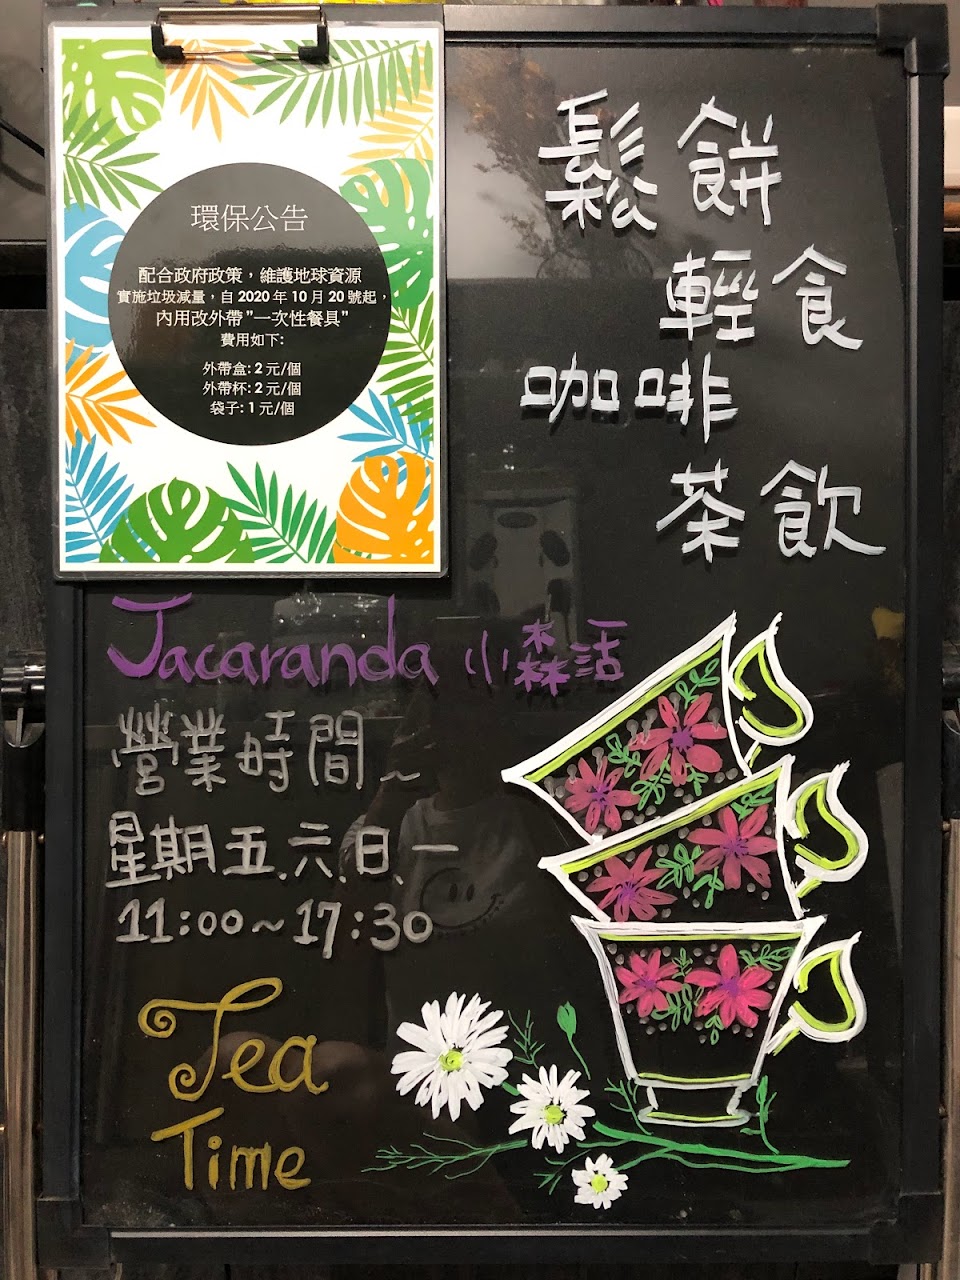 環保公告
配合政府政策，維護地球資源
實施垃圾減量，自 2020 年 10 月 20 號起，
內用改外帶 "一次性餐具"
費用如下:
外帶盒: 2 元/個
外帶杯: 2 元/個
袋子: 1 元/個
鬆餅
輕食
咖啡
茶飲
Jacaranda 小森活
營業時間~
星期五.六.日.一
11:00~17:30
Tea
Time